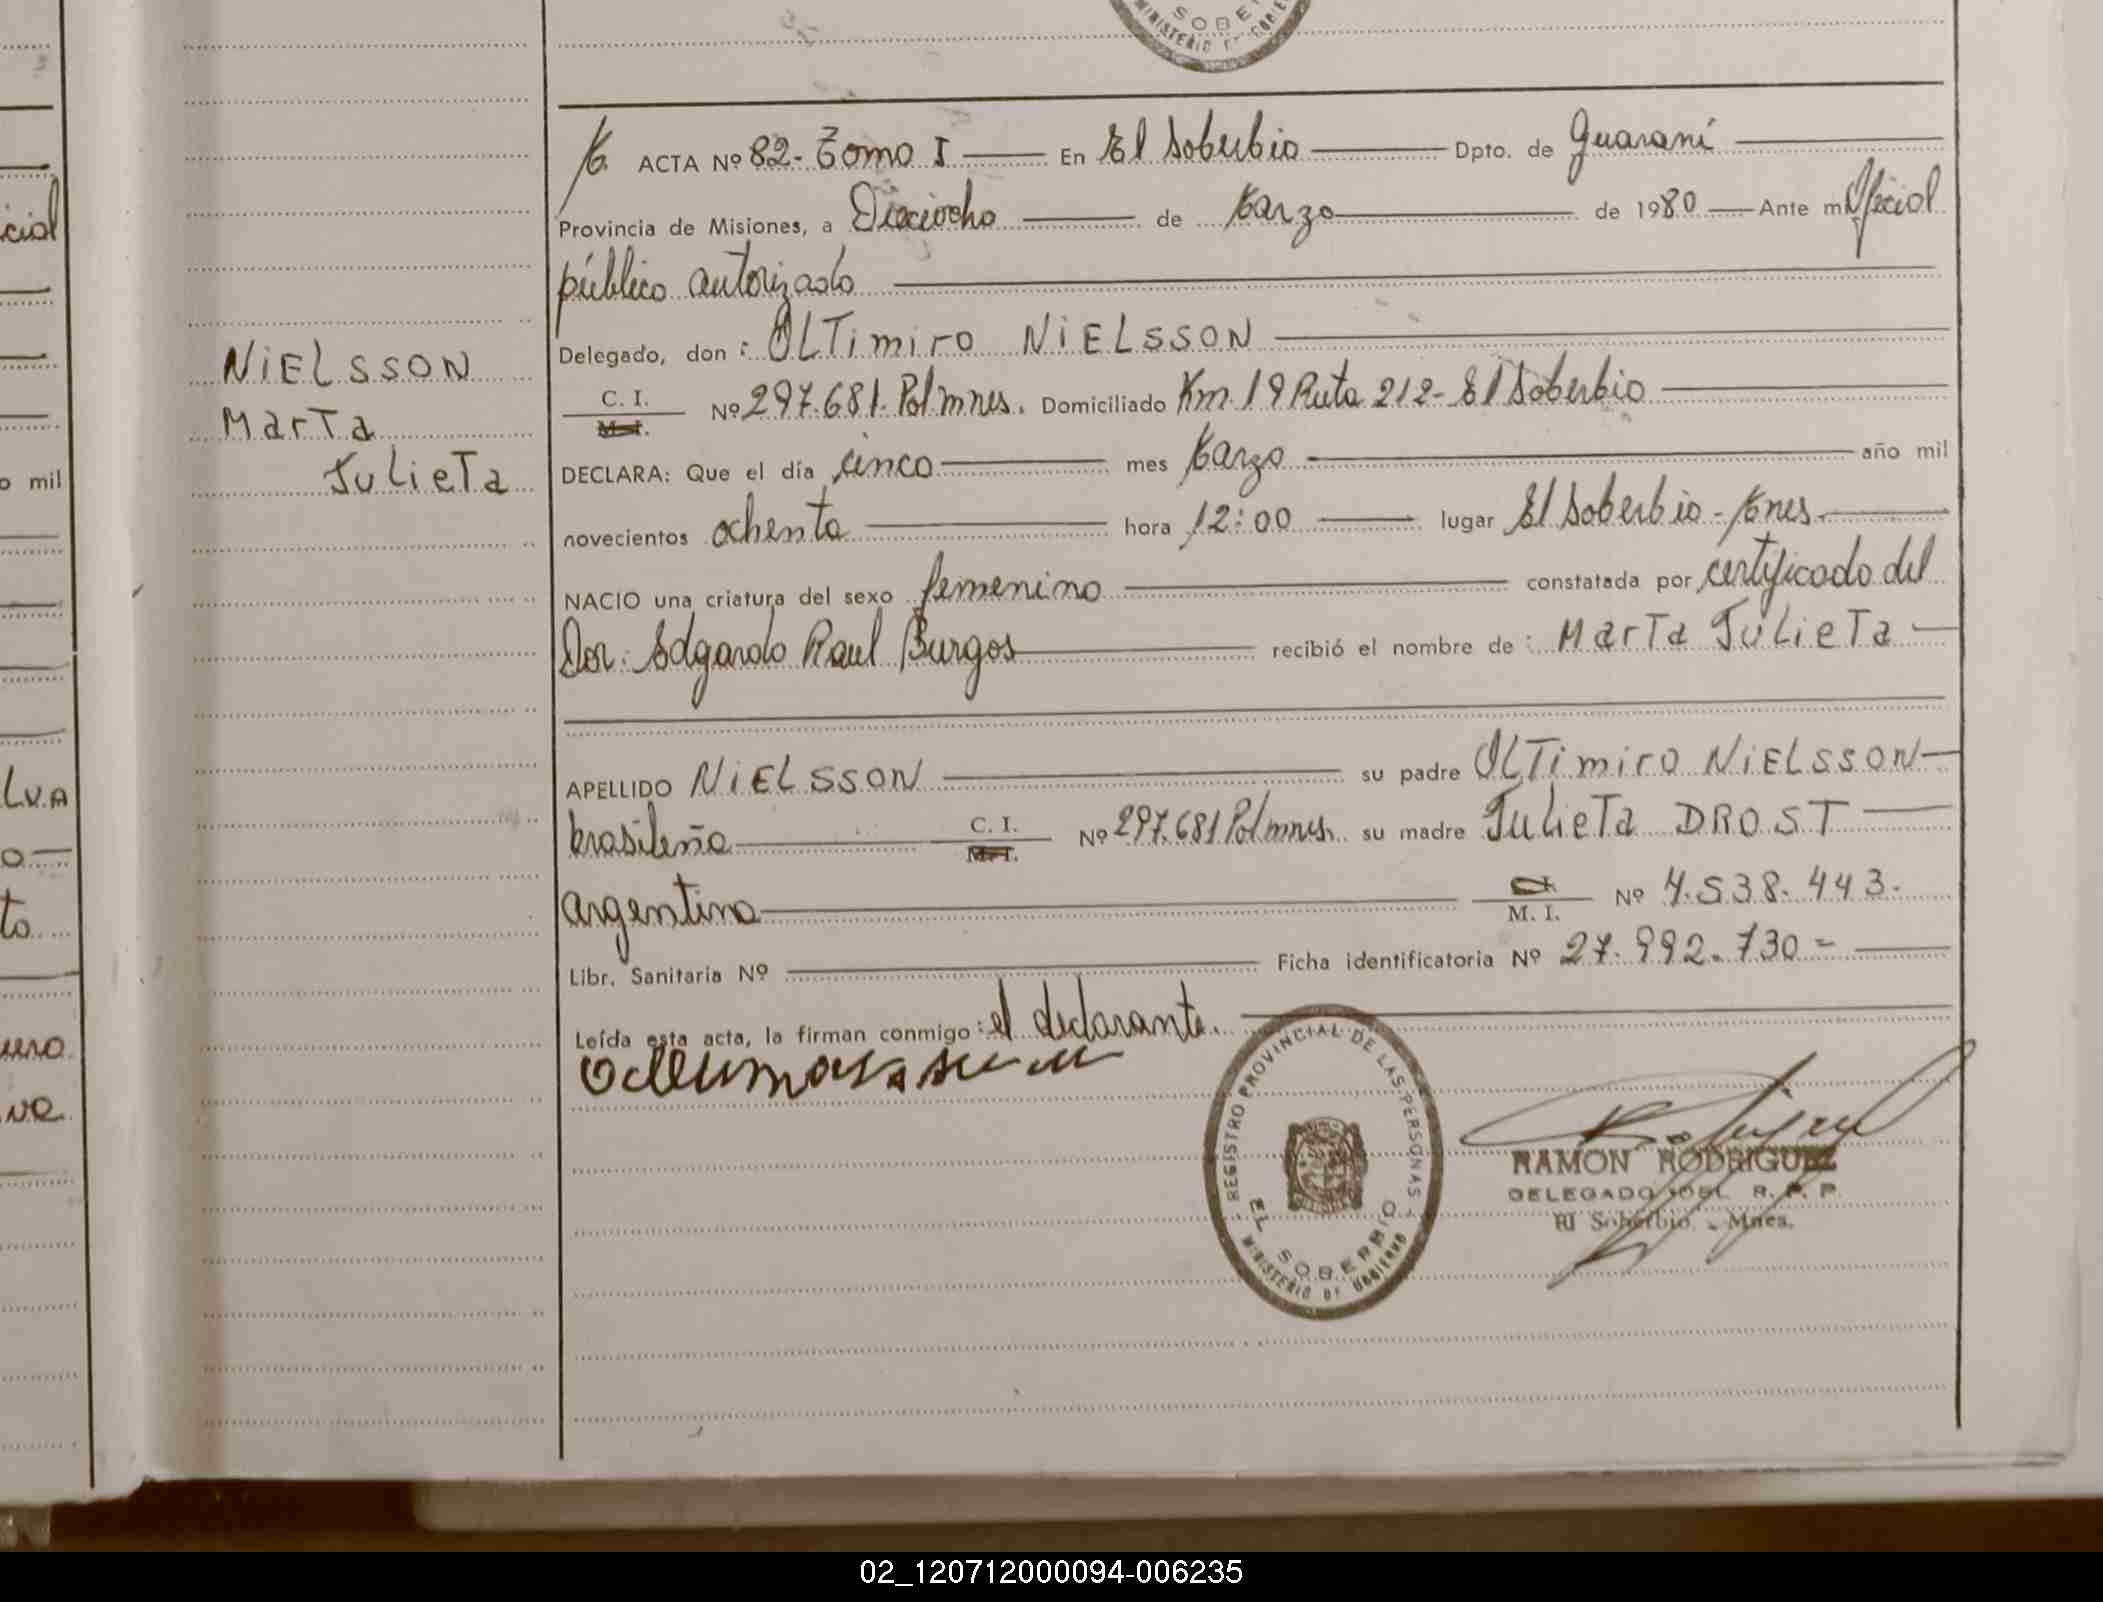 SOBE
MINISTERIO DE GOBIE
ACTA Nº 82- Tomo I En El Soberbio Dpto. de Guaraní
Provincia de Misiones, a Dieciocho de Marzo de 1980 Ante mí Oficial
público autorizado
Delegado, don: OLTimiro NiELSSON
C. I.
M. I.
Nº 297.681. Pol mnes. Domiciliado Km. 19 Ruta 212- El Soberbio
DECLARA: Que el día cinco mes Marzo año mil
novecientos ochenta hora 12:00 lugar El Soberbio - Mnes.
NACIO una criatura del sexo femenino constatada por certificado del
Dor. Edgardo Raul Burgos recibió el nombre de: MarTa JuLieTa
APELLIDO NiELSSON su padre OLTimiro NiELSSON
brasileño C. I. Nº 297.681 Pol mnes. su madre JuLieTa DROST
M. I.
argentina C. I. Nº 4.538.443.
M. I.
Libr. Sanitaria Nº Ficha identificatoria Nº 27.992.730=
Leída esta acta, la firman conmigo: el declarante.
NiELSSON
MarTa
JuLieTa
REGISTRO PROVINCIAL DE LAS PERSONAS
EL SOBERBIO
MINISTERIO DE GOBIERNO
RAMON RODRIGUEZ
DELEGADO DEL R. P. P.
El Soberbio. - Mnes.
cial
o mil
LVA
o
to
uero
ve
02_120712000094-006235